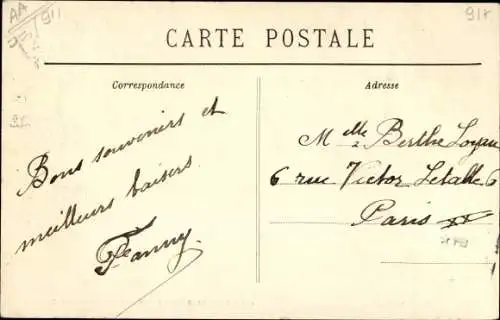 AA
911
917
CARTE POSTALE
Correspondance
Adresse
Bons souvenirs et
meilleurs baisers
Fanny.
Melle Berthe Loyau
6 rue Victor Letalle 6
Paris XX